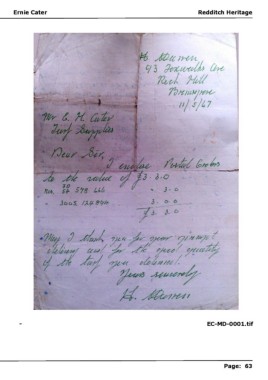 Ernie Cater
Redditch Heritage
43 Foxwalks Ave
Rock Hill
Bromsgrove
11/5/67
Mr C. H. Cater
Turf Supplies
Dear Sir,
I enclose Postal Orders
to the value of £3.3.0
3. 0
3. 0. 0
£3 3. 0
May I thank you for your
delivery and for the good quality
of the turf you delivered.
Yours sincerely
EC-MD-0001.tif
Page: 63